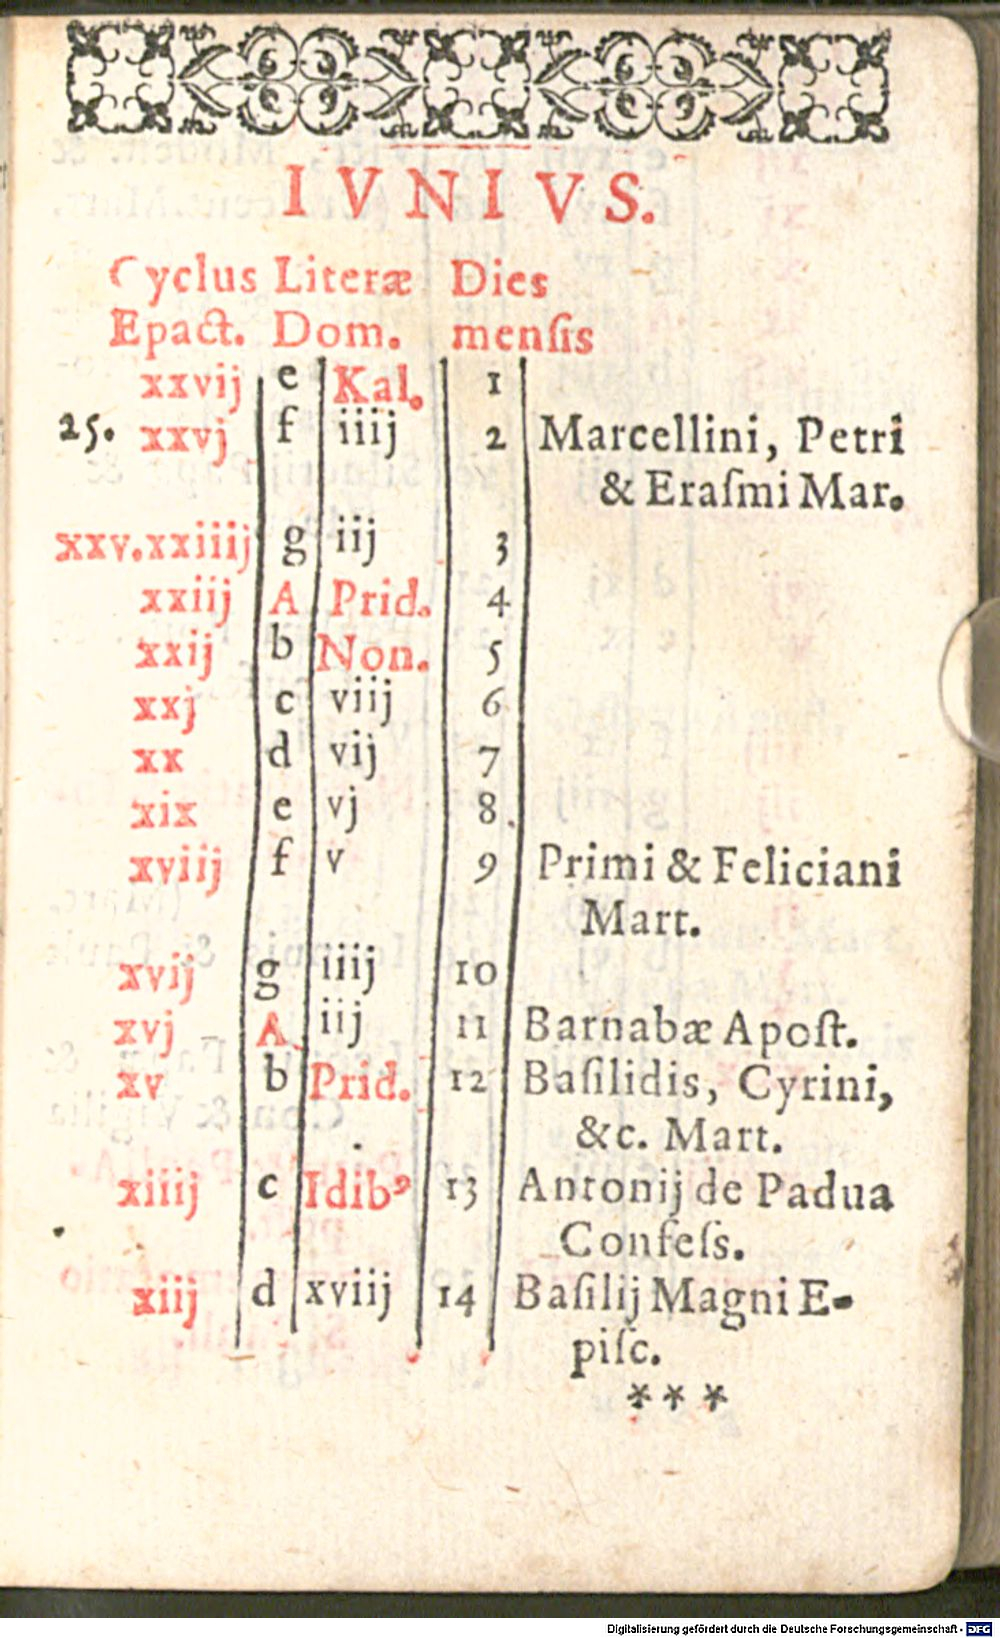 IVNIVS.
Cyclus Literæ Dies
Epact. Dom. menſis
xxvij e Kal. 1
25. xxvj f iiij 2 Marcellini, Petri
& Eraſmi Mar.
xxv.xxiiij g iij 3
xxiij A Prid. 4
xxij b Non. 5
xxj c viij 6
xx d vij 7
xix e vj 8
xviij f v 9 Primi & Feliciani
Mart.
xvij g iiij 10
xvj A iij 11 Barnabæ Apoſt.
xv b Prid. 12 Baſilidis, Cyrini,
&c. Mart.
xiiij c Idibꝰ 13 Antonij de Padua
Confeſs.
xiij d xviij 14 Baſilij Magni E-
piſc.
***
Digitalisierung gefördert durch die Deutsche Forschungsgemeinschaft - DFG